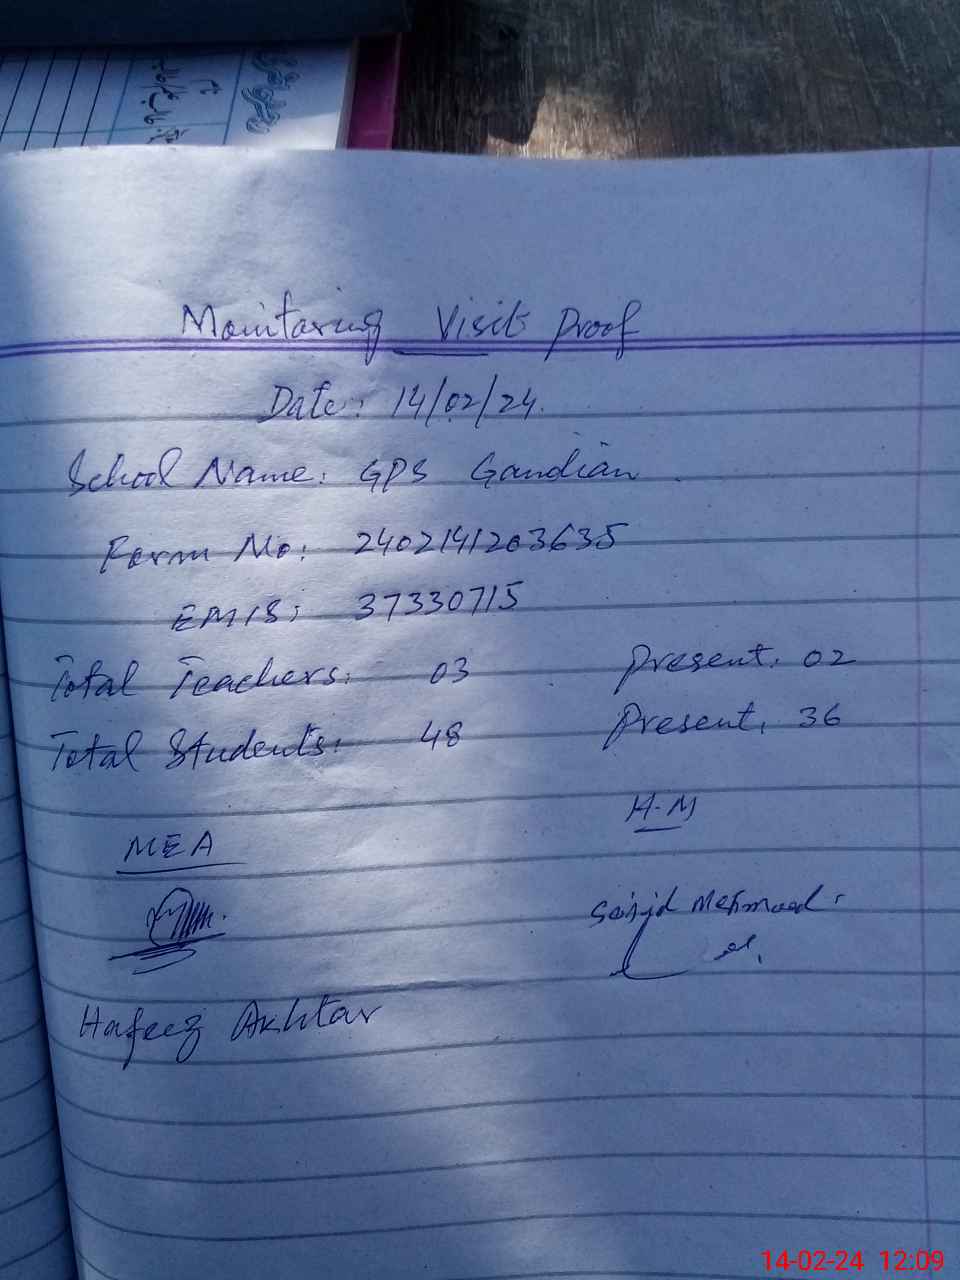 Monitoring Visit Proof
Date: 14/02/24.
School Name: GPS Gandian
Form No: 2402141203635
EMIS: 37330715
Total Teachers: 03 Present. 02
Total Students: 48 Present. 36
MEA H.M
Sajid Mehmood.
Hafeez Akhtar
14-02-24 12:09